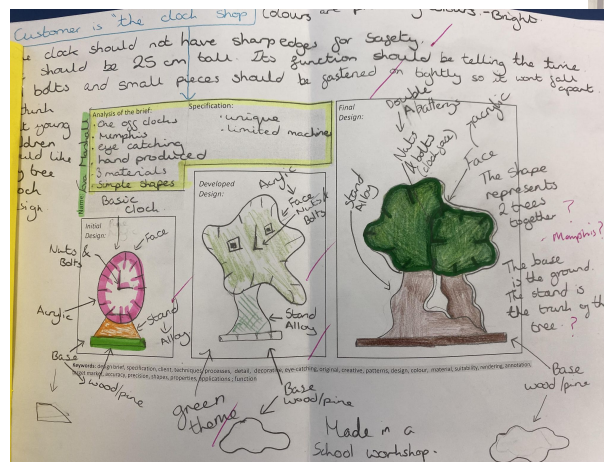 Customer is "the clock shop"
colours are
colours. - Bright.
clock should not have sharp edges for safety.
should be 25 cm tall. Its function should be telling the time
bolts and small pieces should be fastened on tightly so it wont fall
apart.
think
young
like
tree
Analysis of the brief:
· One off clocks
· Memphis
· eye catching
· hand produced
· 3 materials
· Simple shapes
Specification:
· unique
· limited machines
Basic
clock.
Initial
Design:
Nuts &
Bolts
Face
Acrylic
Stand
Alloy
Base
wood/pine
Developed
Design:
Acrylic
Face
Nuts &
Bolts
Stand
Alloy
green
theme
Base
wood/pine
Final
Design:
Double
A batterys
Nuts
& bolts
(clock face)
acrylic
Face
Stand
Alloy
The shape
represents
2 trees
together ?
- Memphis?
The base
is the ground.
The stand is
the trunk of the
tree. ?
Base
wood/pine
Keywords: design brief, specification, client, techniques, processes, detail, decorative, eye-catching, original, creative, patterns, design, colour, material, suitability, rendering, annotation,
target market, accuracy, precision, shapes, properties, applications, function
Made in a
School workshop.